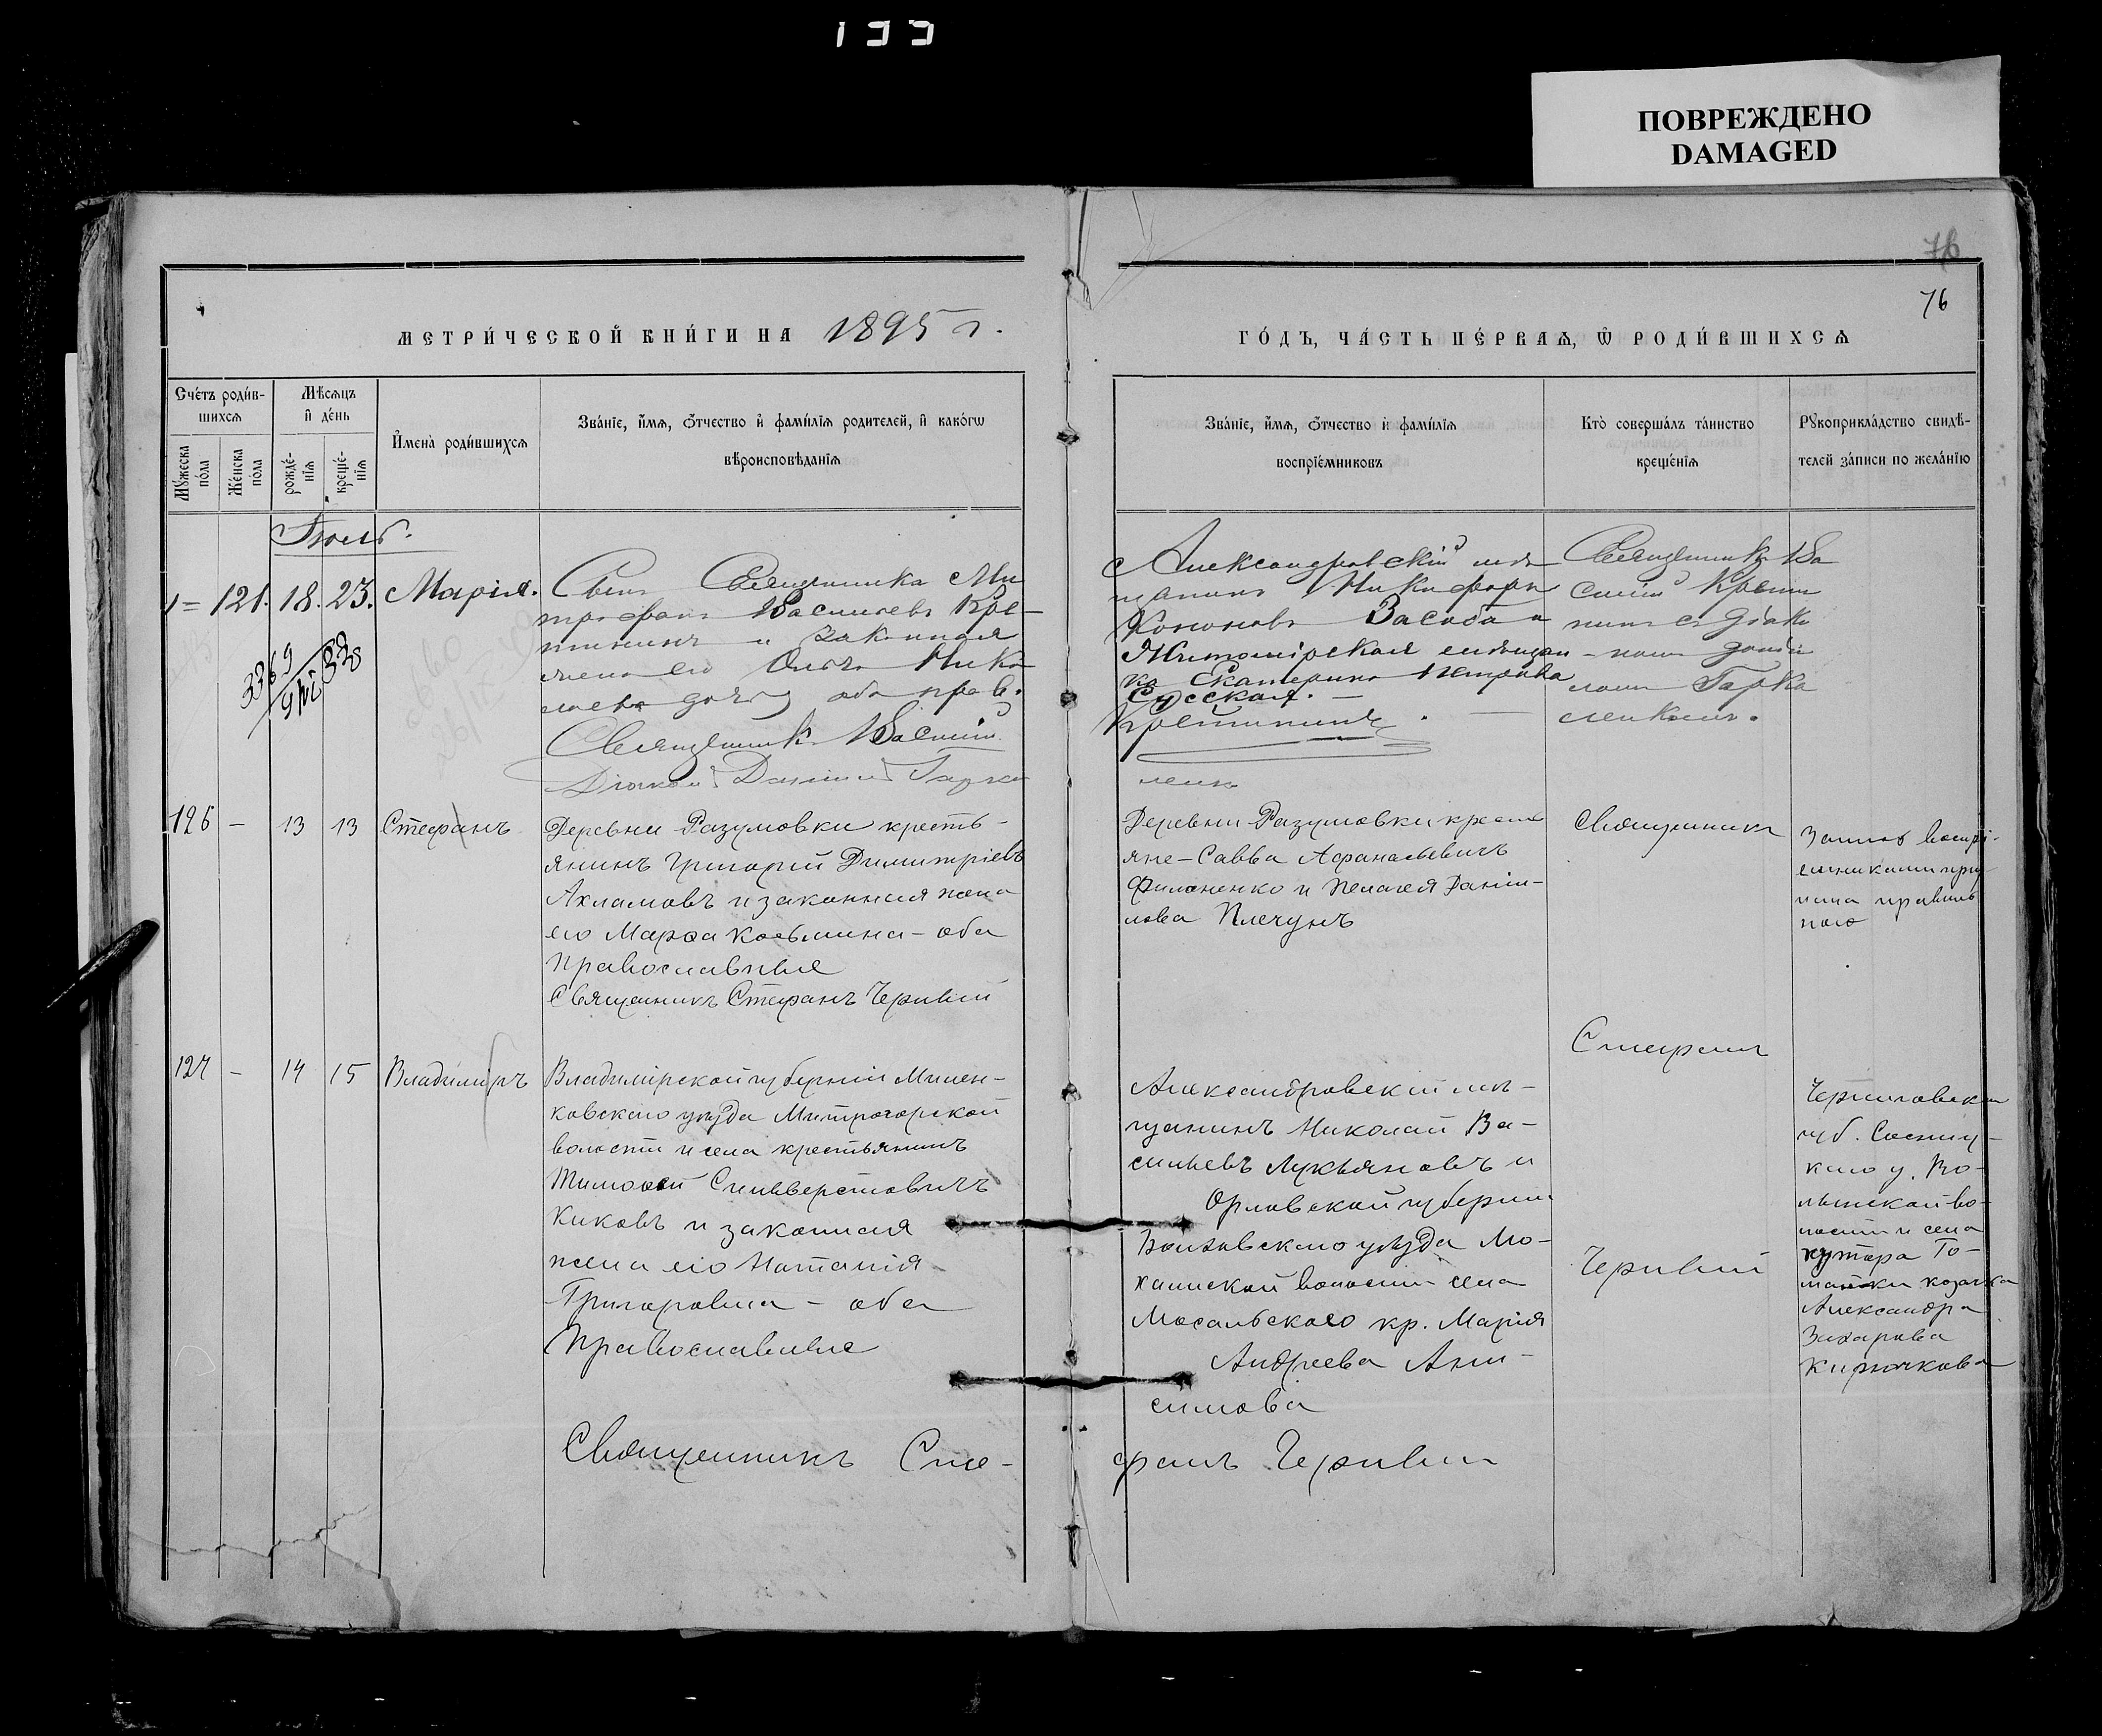 133
ПОВРЕЖДЕНО
DAMAGED
76
76
МЕТРИ́ЧЕСКОЙ КНИ́ГИ НА 1895 г.
ГО́ДЪ, ЧА́СТЬ ПЕ́РВАѦ, Ѿ РОДИ́ВШИХСѦ
Сче́тъ роди́в-
шихсѧ
Мѣ́сѧцъ
и҆ де́нь
Му́жеска по́ла
Же́нска по́ла
рожде́-
нїѧ
креще́-
нїѧ
И҆мена̀ роди́вшихсѧ
Зва́нїе, и҆́мѧ, ѻ҆́тчество и҆ фами́лїѧ родителей, и҆ како́гѡ
вѣроисповѣ́данїѧ
Зва́нїе, и҆́мѧ, ѻ҆́тчество и҆ фами́лїѧ
воспрїе́мниковъ
Кто̀ соверша́лъ та́инство
креще́нїѧ
Рꙋкоприкла́дство свидѣ́-
телей за́писи по жела́нїю
Іюль.
1 = 121. 18. 23. Марія.
Сынъ Священника Ми
трофанъ Васильевъ Кре-
стининъ и законная
жена его Ольга Нико
лаева дочь, оба прав.
Священникъ Василій
Діаконъ Даніилъ Гарка
Александровскій мѣ
щанинъ Никифоръ
Кононовъ Засоба и
Житомірская мѣщан
ка Екатерина Петрова
Сусская. —
Крестининъ. —
ленко
Священникъ Ва
силій Крести
нинъ съ діако
номъ Дании
ломъ Гарка
ленкомъ.
3369
126 — 13 13 Стефанъ
Деревни Разумовки кресть-
янинъ Григорій Димитріевъ
Ахламовъ и законная жена
его Марѳа Козьмина – оба
православные
Священникъ Стефанъ Черивый
Деревни Разумовки кресть
яне – Савва Афанасьевичъ
Филоненко и Пелагея Даніи-
лова Плечунъ
Священникъ
Стефанъ
Черивый
127 — 14 15 Владиміръ
Владимірской губерніи Мелен-
ковского уѣзда Митрогорской
волости и села крестьянинъ
Тимоѳей Сильверстовичъ
Киковъ и законная
жена его Наталія
Григоровна – оба
Православные
Священникъ Сте-
Александровскій мѣ-
щанинъ Николай Ва-
сильевъ Лукьяновъ и
Орловской губерніи
Болховского уѣзда Мо-
волости села
кр. Марія
Андреева Ани-
симова
фанъ Черивый
Черниговской
губ. Сосниц-
каго у. Во-
лынской во-
лости и села
хутора
козачка
Александра
Захарова
Кирючкова